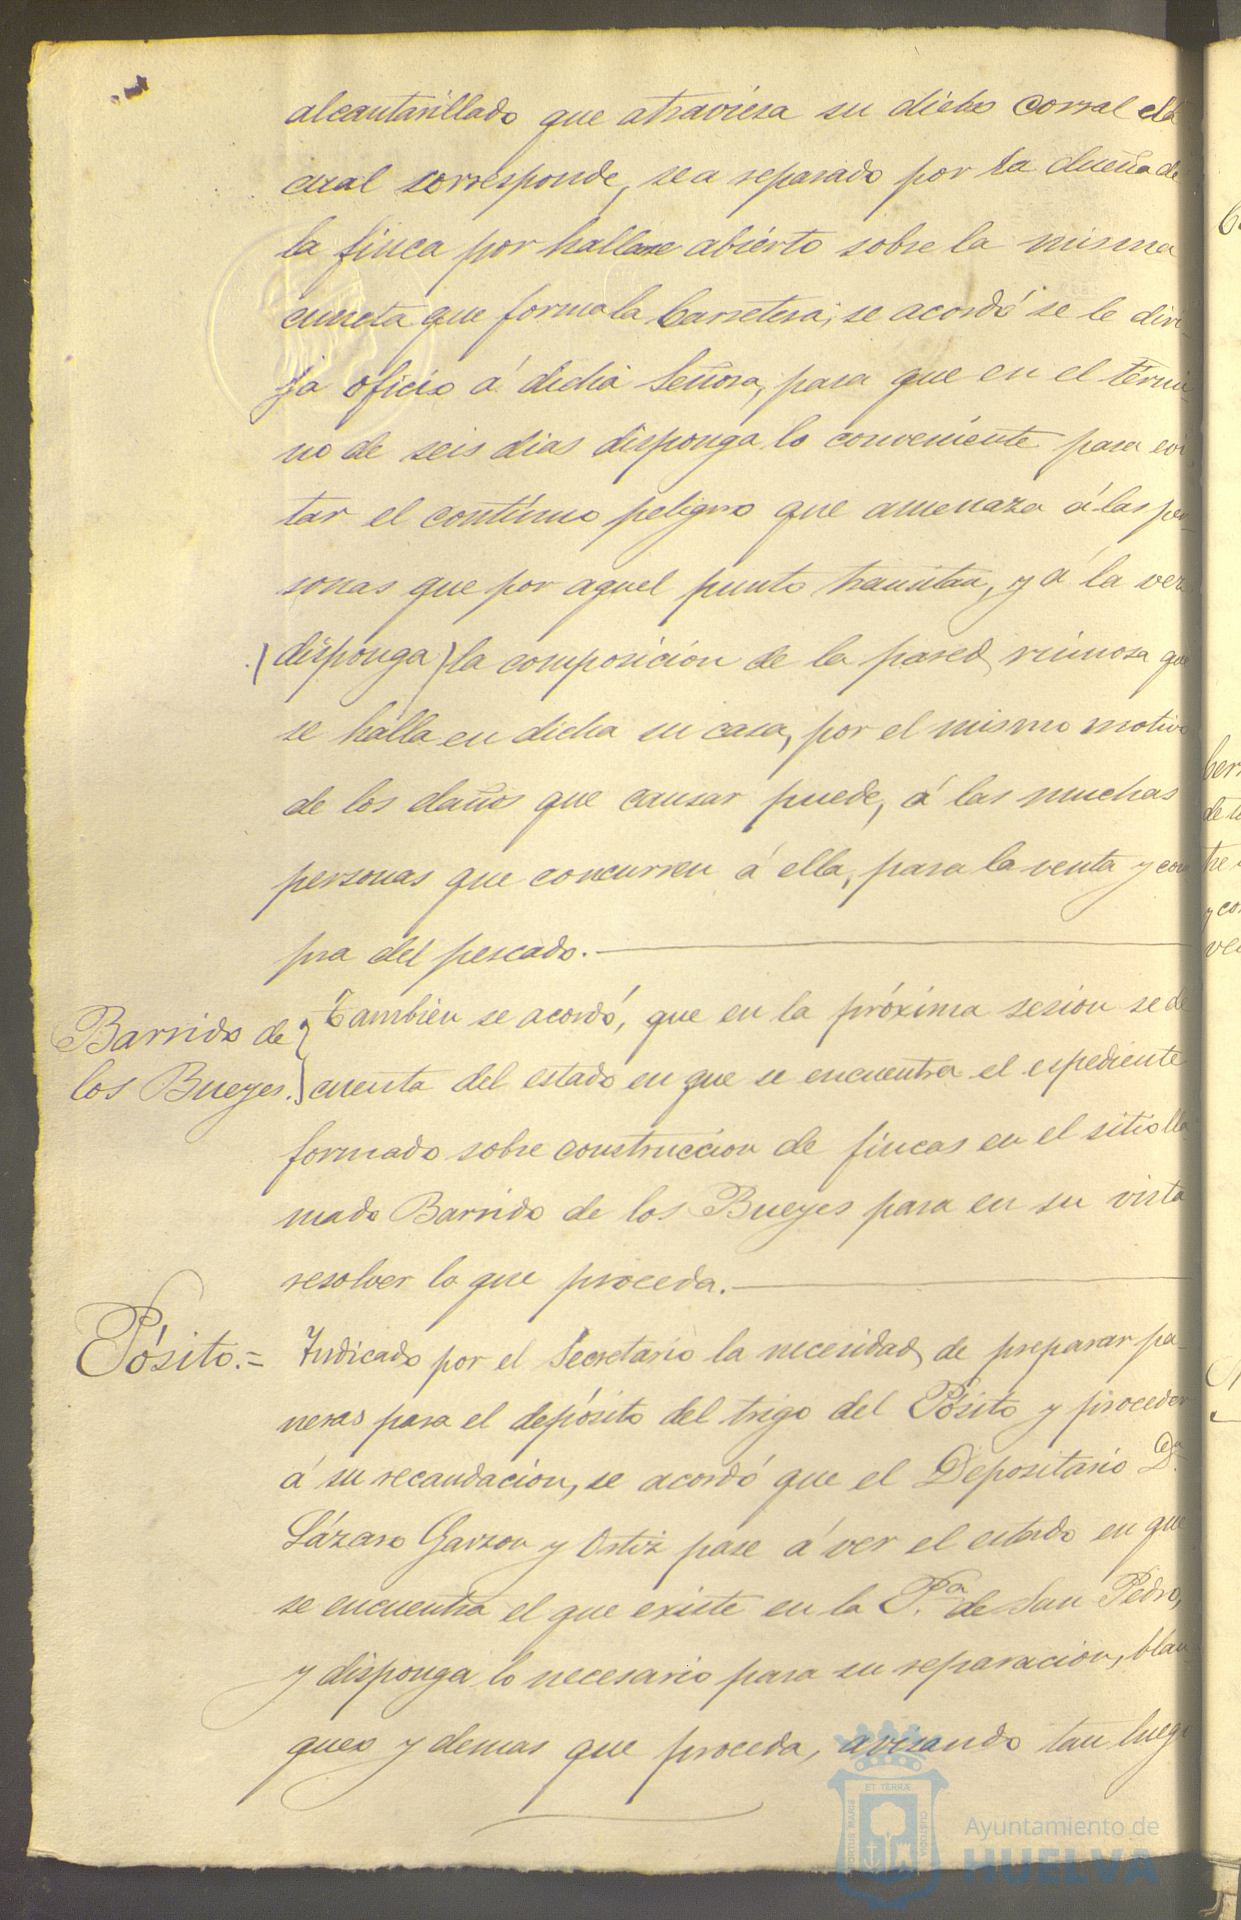 alcantarillado que atraviesa su dicho corral ella
cual corresponde, sea reparado por la dueña de
la finca por hallarse abierto sobre la misma
cuneta que forma la Carretera; se acordó se le diri-
ja oficio á dicha Señora, para que en el térmi
no de seis dias disponga lo conveniente para evi
tar el contínuo peligro que amenaza á las per
sonas que por aquel punto transitan, y á la vez
disponga la composicion de la pared ruinosa que
se halla en dicha su casa, por el mismo motivo
de los daños que causar puede, á las muchas
personas que concurren á ella, para la venta y com
pra del pescado.
Barrido de
los Bueyes.
Tambien se acordó, que en la próxima sesion se dé
cuenta del estado en que se encuentra el espediente
formado sobre construccion de fincas en el sitio lla
mado Barrido de los Bueyes para en su vista
resolver lo que proceda.
Pósito.=
Indicado por el Secretario la necesidad de preparar pa-
neras para el depósito del trigo del Pósito y proceder
á su recaudacion, se acordó que el Depositario Dn
Lázaro Garzon y Ortiz pase á ver el estado en que
se encuentra el que existe en la P.a de San Pedro,
y disponga lo necesario para su reparacion, blan
queo y demas que proceda, avisando tan luego
ET TERRÆ
PORTUS MARIS
CUSTODIA
Ayuntamiento de
HUELVA